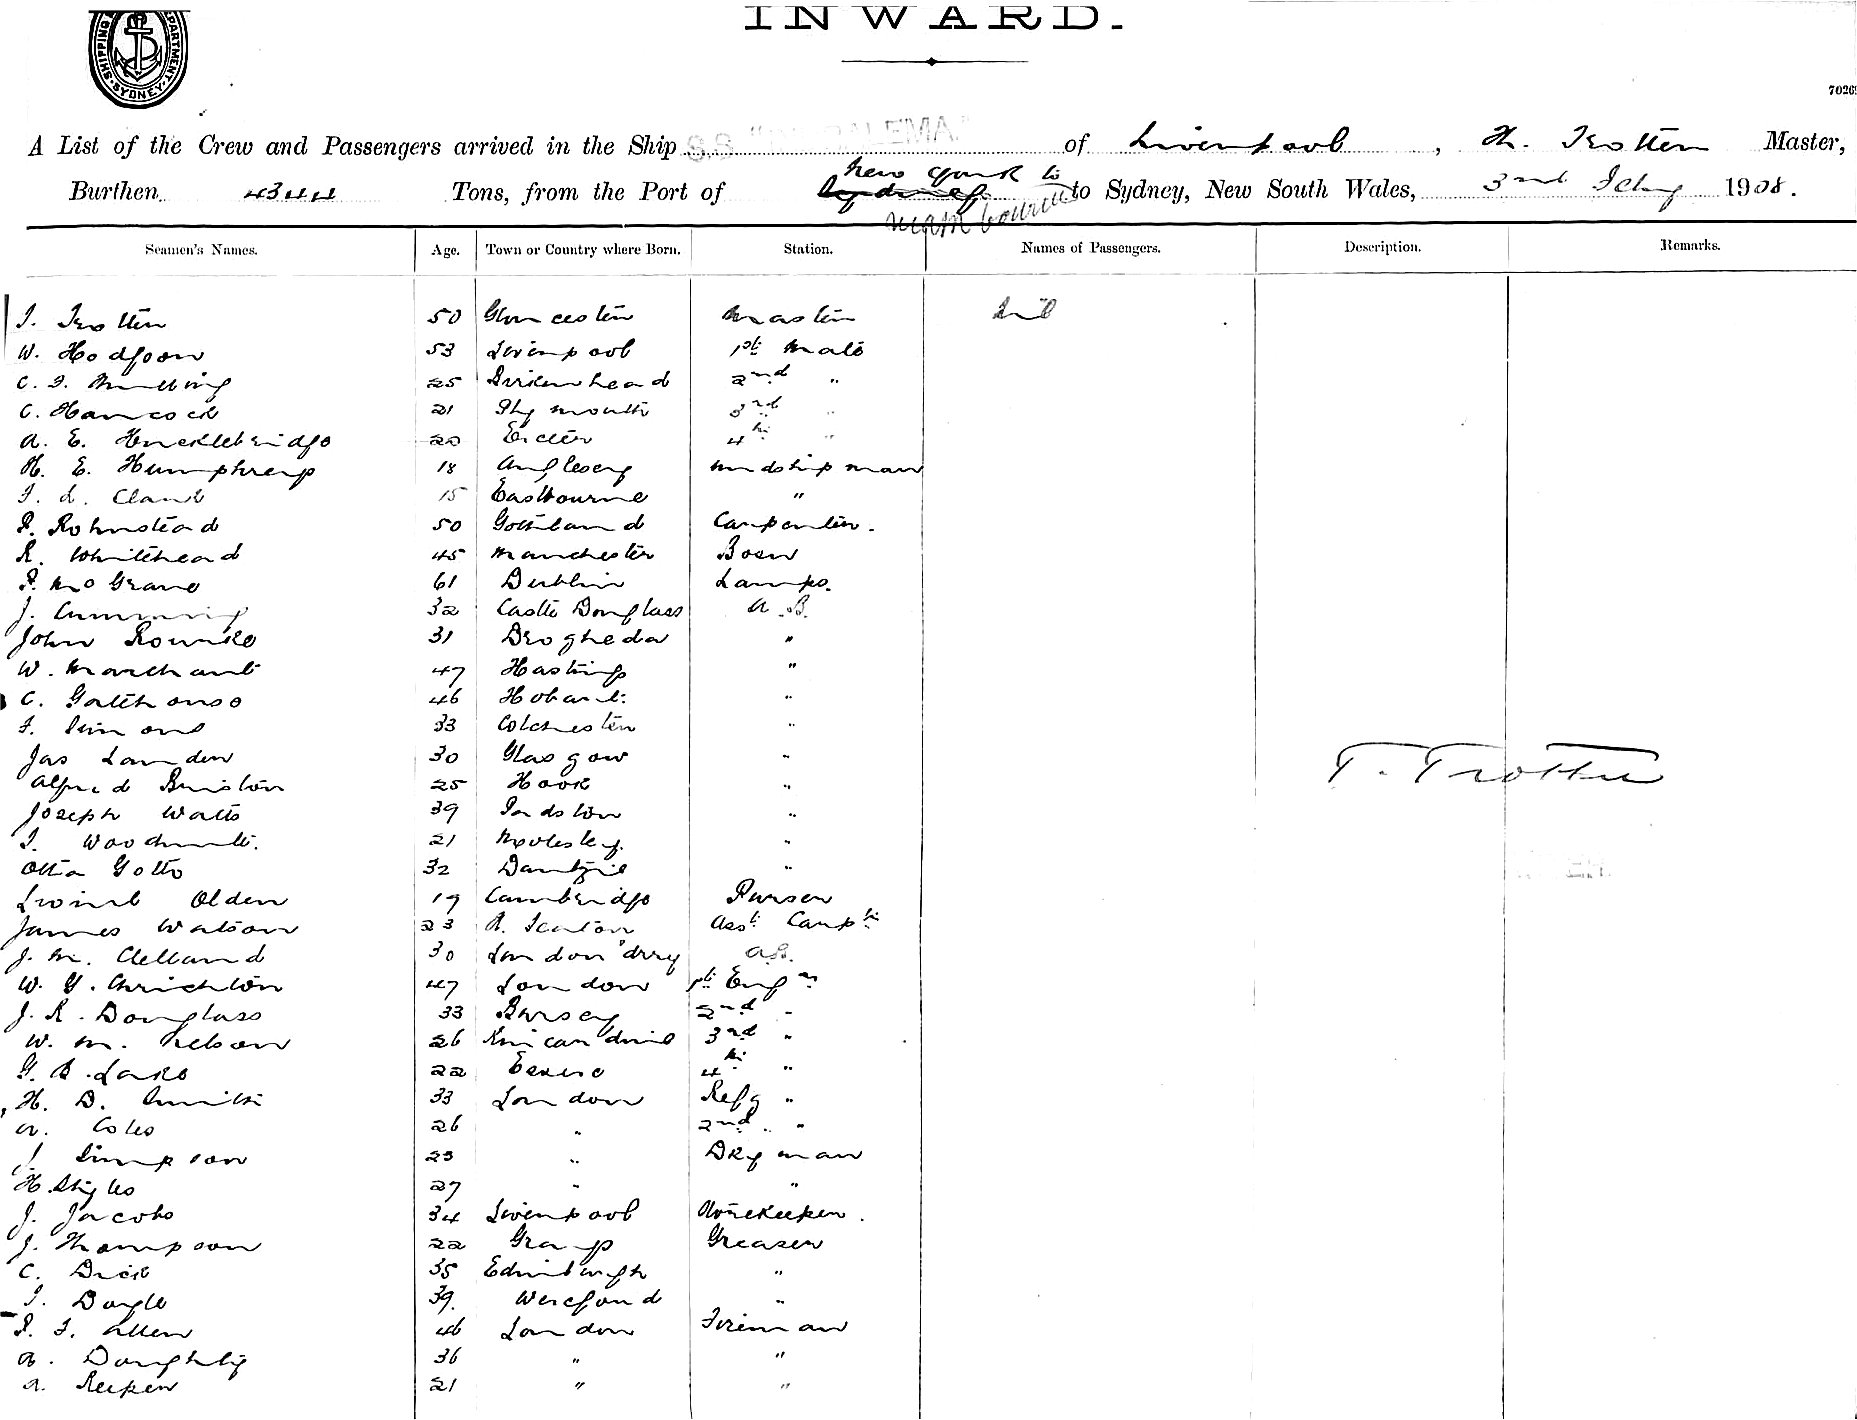 INWARD.
SHIPPING DEPARTMENT SYDNEY
A List of the Crew and Passengers arrived in the Ship S.S. of Liverpool, Trotter Master,
New York to
Burthen 4344 Tons, from the Port of to Sydney, New South Wales, 3rd Feby 1908.
Melbourne
Seamen's Names. Age. Town or Country where Born. Station. Names of Passengers. Description. Remarks.
T. Trotter 50 Gloucester Master Nil
W. Hodgson 53 Liverpool 1st Mate
C. 25 Birkenhead 2nd "
C. Hancock 21 Plymouth 3rd "
A. E. Hucklebridge 20 Exeter 4th "
H. E. Humphreys 18 Anglesey Midshipman
15 Eastbourne "
50 Gothland Carpenter.
R. Whitehead 45 Manchester Bosn
P. McGrane 61 Dublin Lamps.
J. Cumming 32 Castle Douglass A.B.
John Rourke 31 Drogheda "
W. Marchant 47 Hastings "
C. Gatehouse 46 Hobart. "
F. Simons 33 Colchester "
Jas 30 Glasgow "
Alfred 25 Hook "
Joseph Watts 39 "
21 "
Otto Gotto 32 Dantzic "
Olden 19 Cambridge Purser
James Watson 23 Asst Carptr
J. McClelland 30 London'drry
W. Y. Crichton 47 London 1st Engr
J. R. Douglass 33 2nd "
W. M. Nelson 26 Kincardine 3rd "
G. B. Lake 22 4th "
H. D. Smith 33 London Refg "
A. Coles 26 " 2nd "
J. Simpson 23 " Dkyman
H. Stiles 27 " "
J. Jacobs 34 Liverpool Storekeeper.
J. Thompson 22 Grays Greaser
C. Dick 35 Edinburgh "
T. Doyle 39. Wexford "
P. F. Allen 46 London Fireman
A. Doughty 36 " "
A. 21 " "
T. Trotter